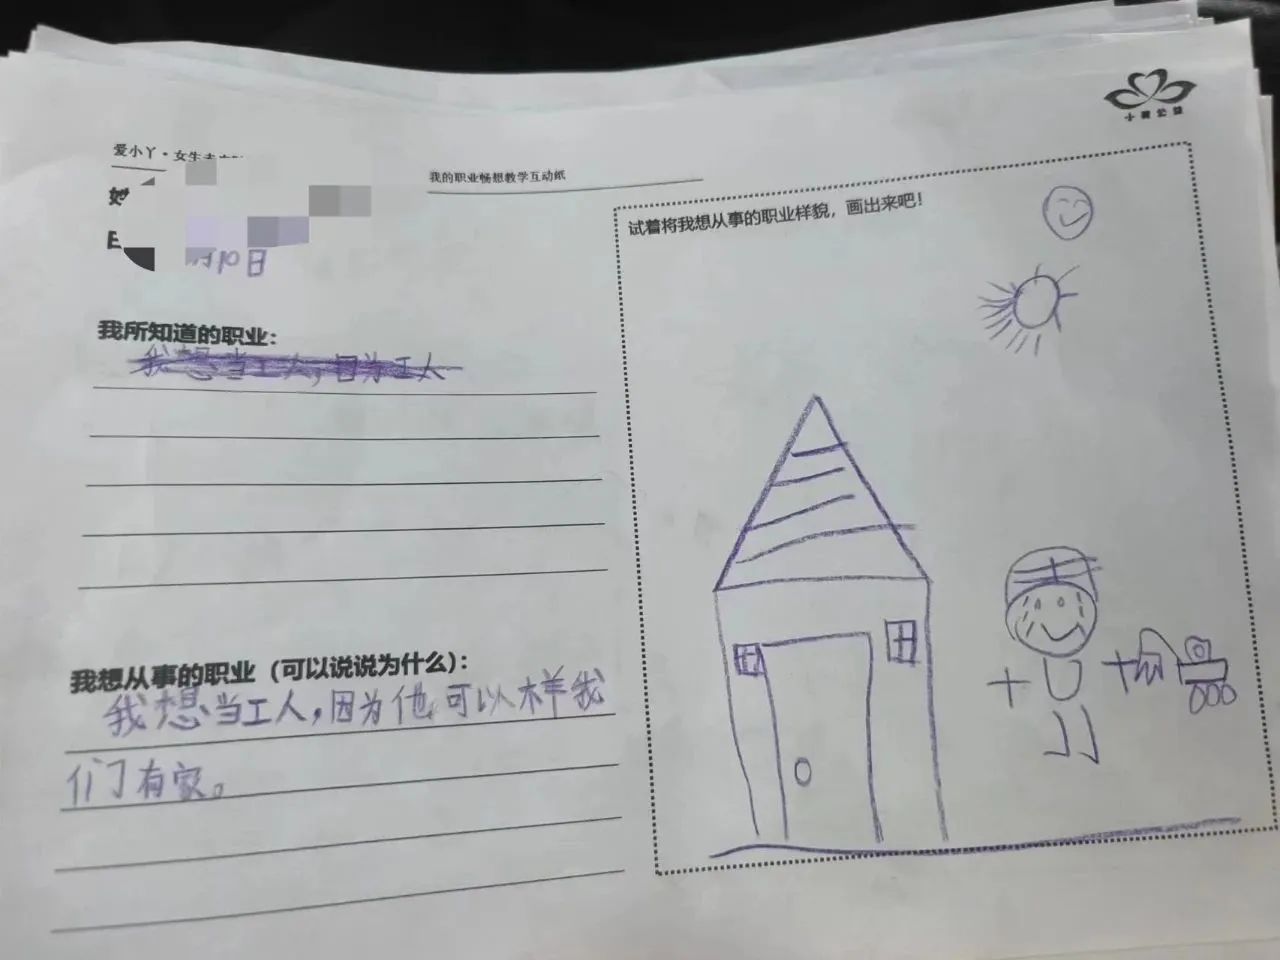 小 圆 公 益
爱小丫·女生
我的职业畅想教学互动纸
试着将我想从事的职业样貌，画出来吧！
月10日
我所知道的职业：
我想当工人，因为工人
我想从事的职业（可以说说为什么）：
我想当工人，因为他可以样我
们有家。